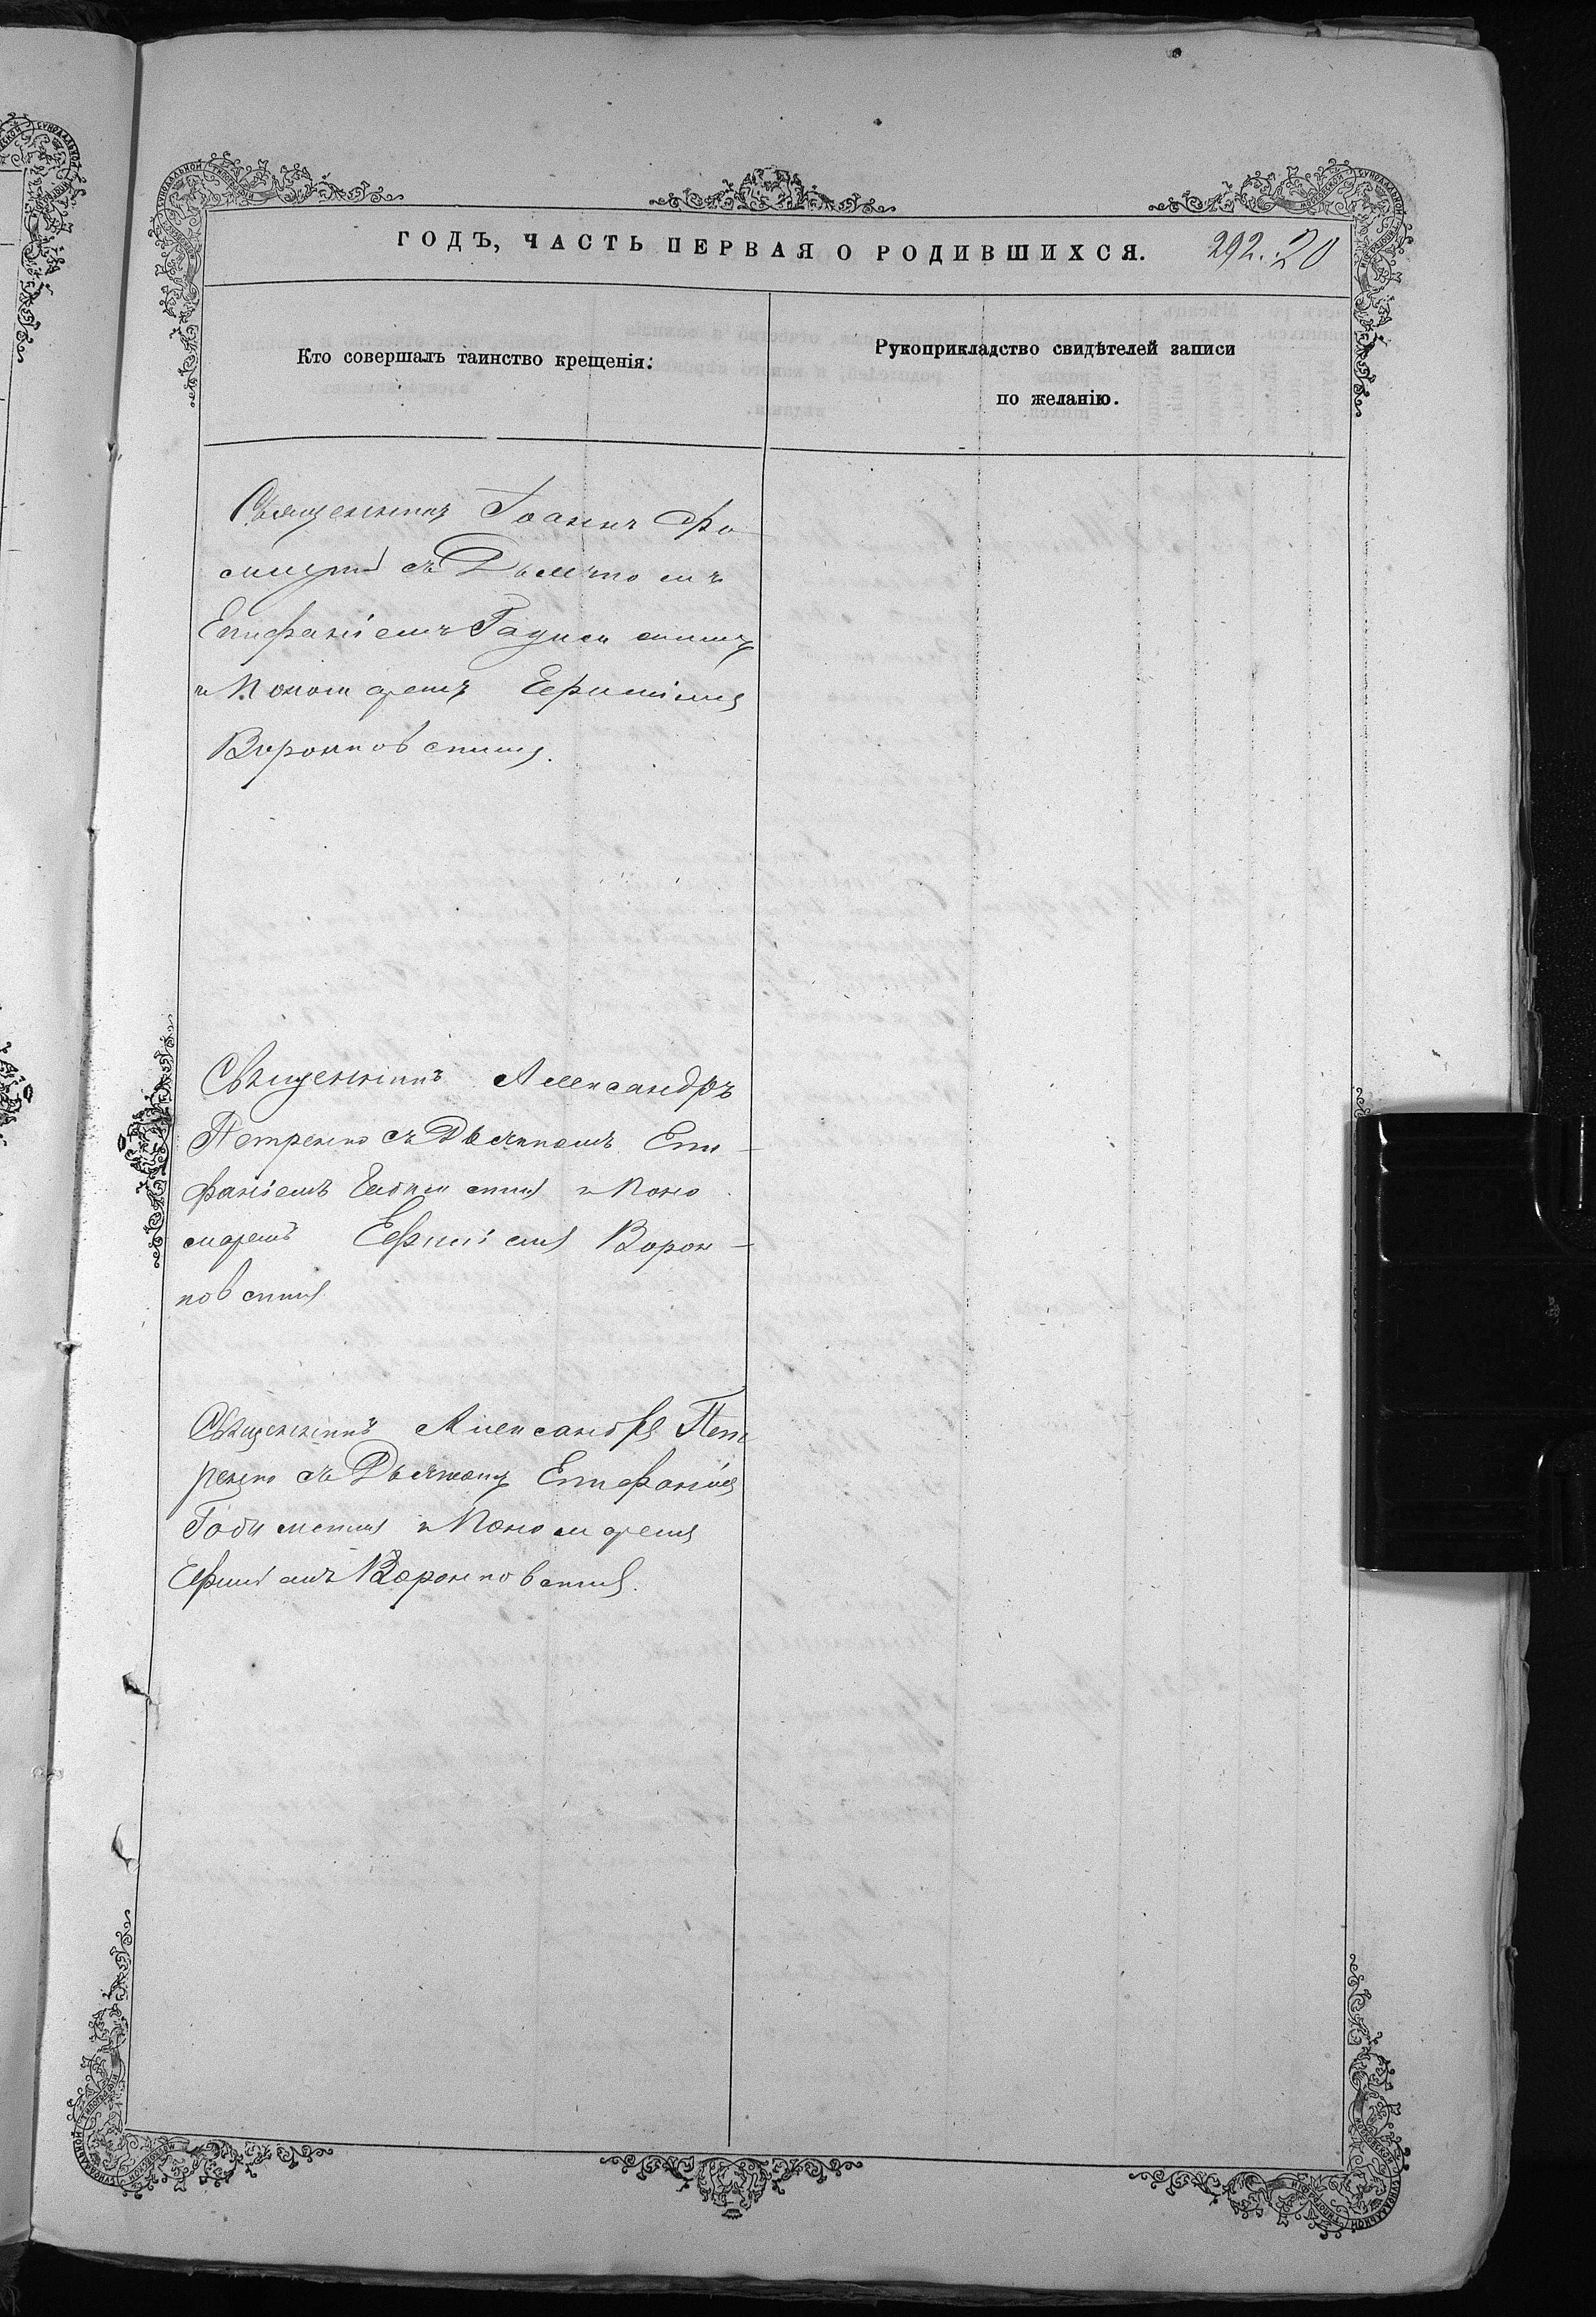 ГОДЪ, ЧАСТЬ ПЕРВАЯ О РОДИВШИХСЯ.
292. 20
Кто совершалъ таинство крещенія:
Рукоприкладство свидѣтелей записи
по желанію.
Священникъ Іоаннъ
съ Дьячкомъ
Епифаніемъ
и Пономаремъ Ефиміемъ
Воронковскимъ.
Священникъ Александръ
Петренко съ Дьячкомъ Епи-
фаніемъ и Поно
маремъ Ефиміемъ Ворон-
ковскимъ
Священникъ Александръ Пет
ренко съ Дьячкомъ Епифаніемъ
и Пономаремъ
Ефиміемъ Воронковскимъ.